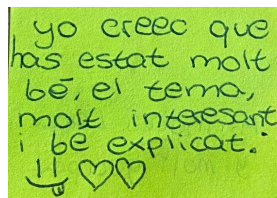 yo creec que
has estat molt
bé, el tema,
molt interesant
i be explicat.